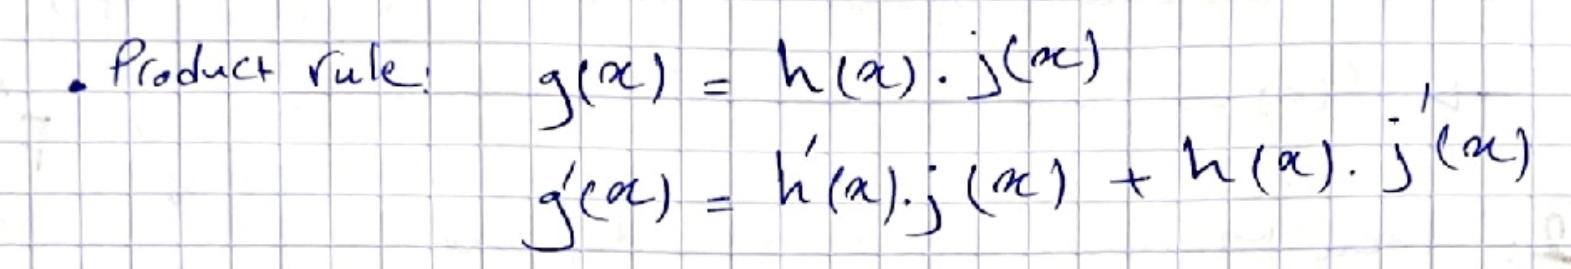 . Product rule: g(x) = h(x) . j(x)
g'(x) = h'(x) . j(x) + h(x) . j'(x)